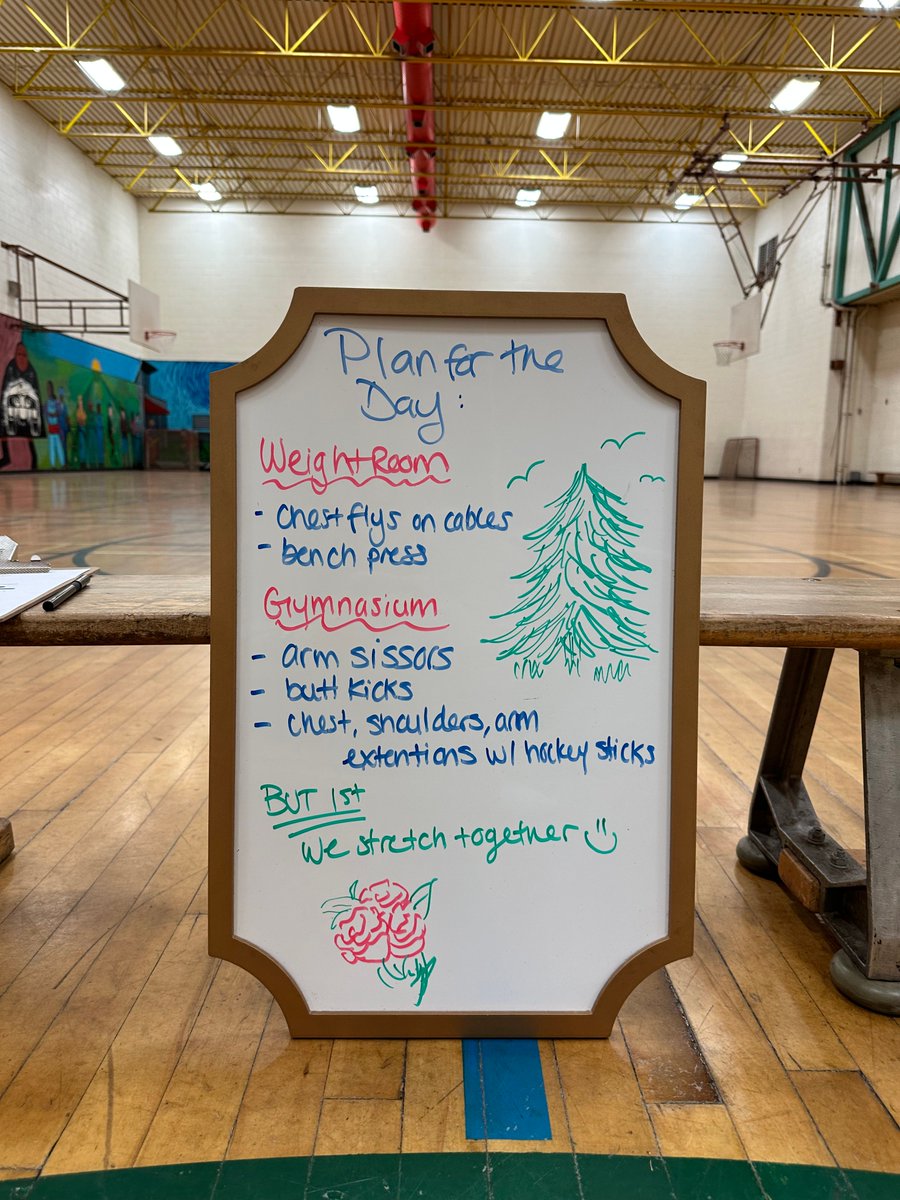 Plan for the
Day:
Weight Room
- chest flys on cables
- bench press
Gymnasium
- arm sissors
- butt kicks
- chest, shoulders, arm
extentions w/ hockey sticks
BUT 1st
we stretch together